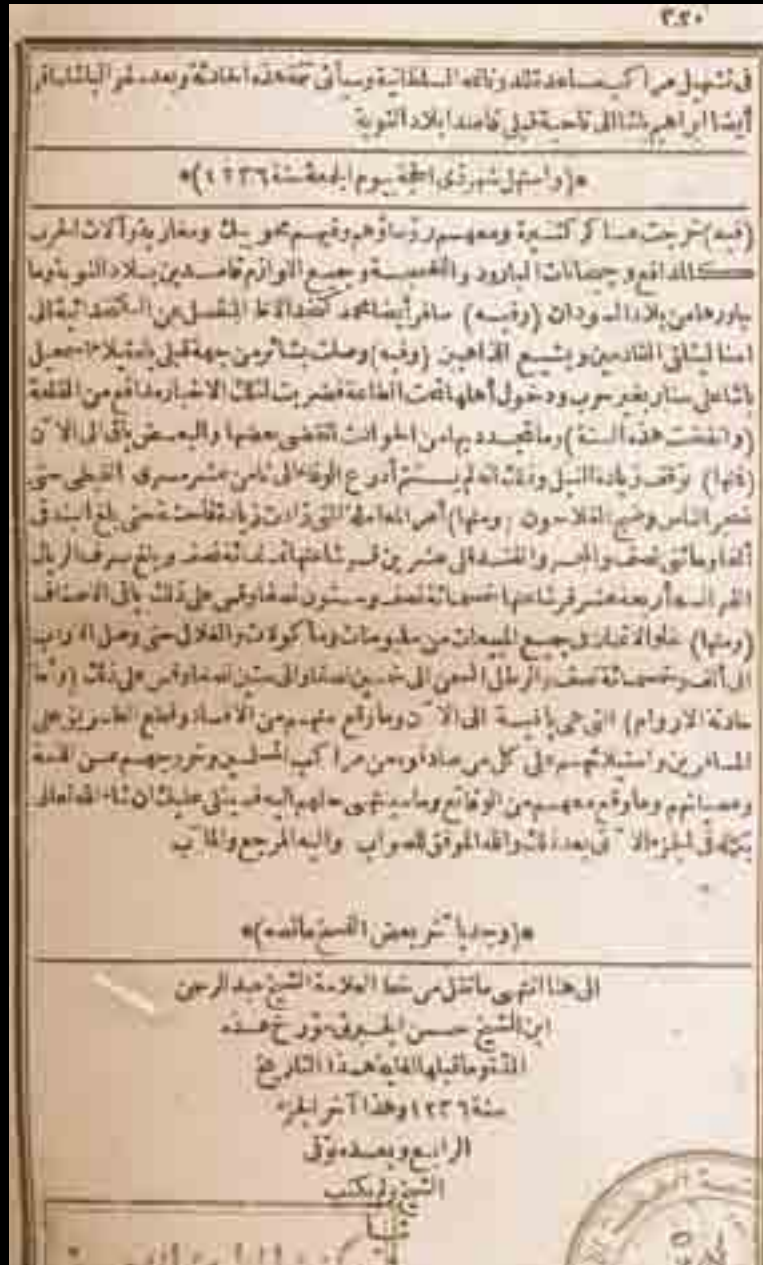 ٣٢٠
فى تشهيل مراكب مساعدة للدونانمه السلطانية وسيأتى تتمة هذه الحادثة وبعد سفر الباشا سافر
أيضا ابراهيم باشا الى ناحية قبلى قاصدا بلاد النوبة
*(واستهل شهر ذى الحجة بيوم الجمعة سنة ١٢٣٦)*
(فيه) خرجت عساكر كثيرة ومعهم رؤساؤهم وفيهم محو بيك ومغاربة وآلات الحرب
كالمدافع وجبخانات البارود واللغمجية وجميع اللوازم قاصدين بلاد النوبة وما
جاورها من بلاد السودان (وفيه) سافر أيضا محمد كتخدا لاظ المنفصل عن الكتخدائية الى
اسنا ليتلقى القادمين ويشيع الذاهبين (وفيه) وصلت بشائر من جهة قبلى باستيلاء اسمعيل
باشا على سنار بغير حرب ودخول أهلها تحت الطاعة فضربت لتلك الاخبار مدافع من القلعة
(وانقضت هذه السنة) وما تجدد بها من الحوادث انقضى بعضها والبعض باق الى الآن
(فنها) توقف زيادة النيل وذلك انه لم يستتم أذرع الوفاء الى ثامن عشر مسرى القبطى حتى
ضجر الناس وضج الفلاحون (ومنها) أمر المعاملة التى زادت زيادة فاحشة حتى بلغ البندقى
ألفا ومائتى نصف والمجر والفندقلى عشرين قرشا عنها ثمانمائة نصف وبلغ صرف الريال
الفرانسه أربعة عشر قرشا عنها خمسمائة نصف وستون نصفا وقس على ذلك باقى الاصناف
(ومنها) غلو الاثمان فى جميع المبيعات من ملبوسات ومأكولات والغلال حتى وصل الاردب
الى ألف وخمسمائة نصف والرطل السمن الى خمسين نصفا والى ستين نصفا وقس على ذلك (وأما
حادثة الاروام) التى هى باقية الى الآن وما وقع منهم من الافساد وقطع الطريق على
المسافرين واستيلائهم على كل من صادفوه من مراكب المسلمين وخروجهم عن الذمة
وعصيانهم وما وقع معهم من الوقائع وما سينتهى حالهم اليه فسيتلى عليك ان شاء الله تعالى
بكماله فى الجزء الآتى بعد ذلك والله الموفق للصواب واليه المرجع والمآب
*(وجد بآخر بعض النسخ مانصه)*
الى هنا انتهى ما نقل من خط العلامة الشيخ عبد الرحمن
ابن الشيخ حسن الجبرتى مؤرخ هذه
المدة وما قبلها لغاية هذا التاريخ
سنة ١٢٣٦ وهذا آخر الجزء
الرابع وبعده توفى
الشيخ ولم يكتب
شيأ